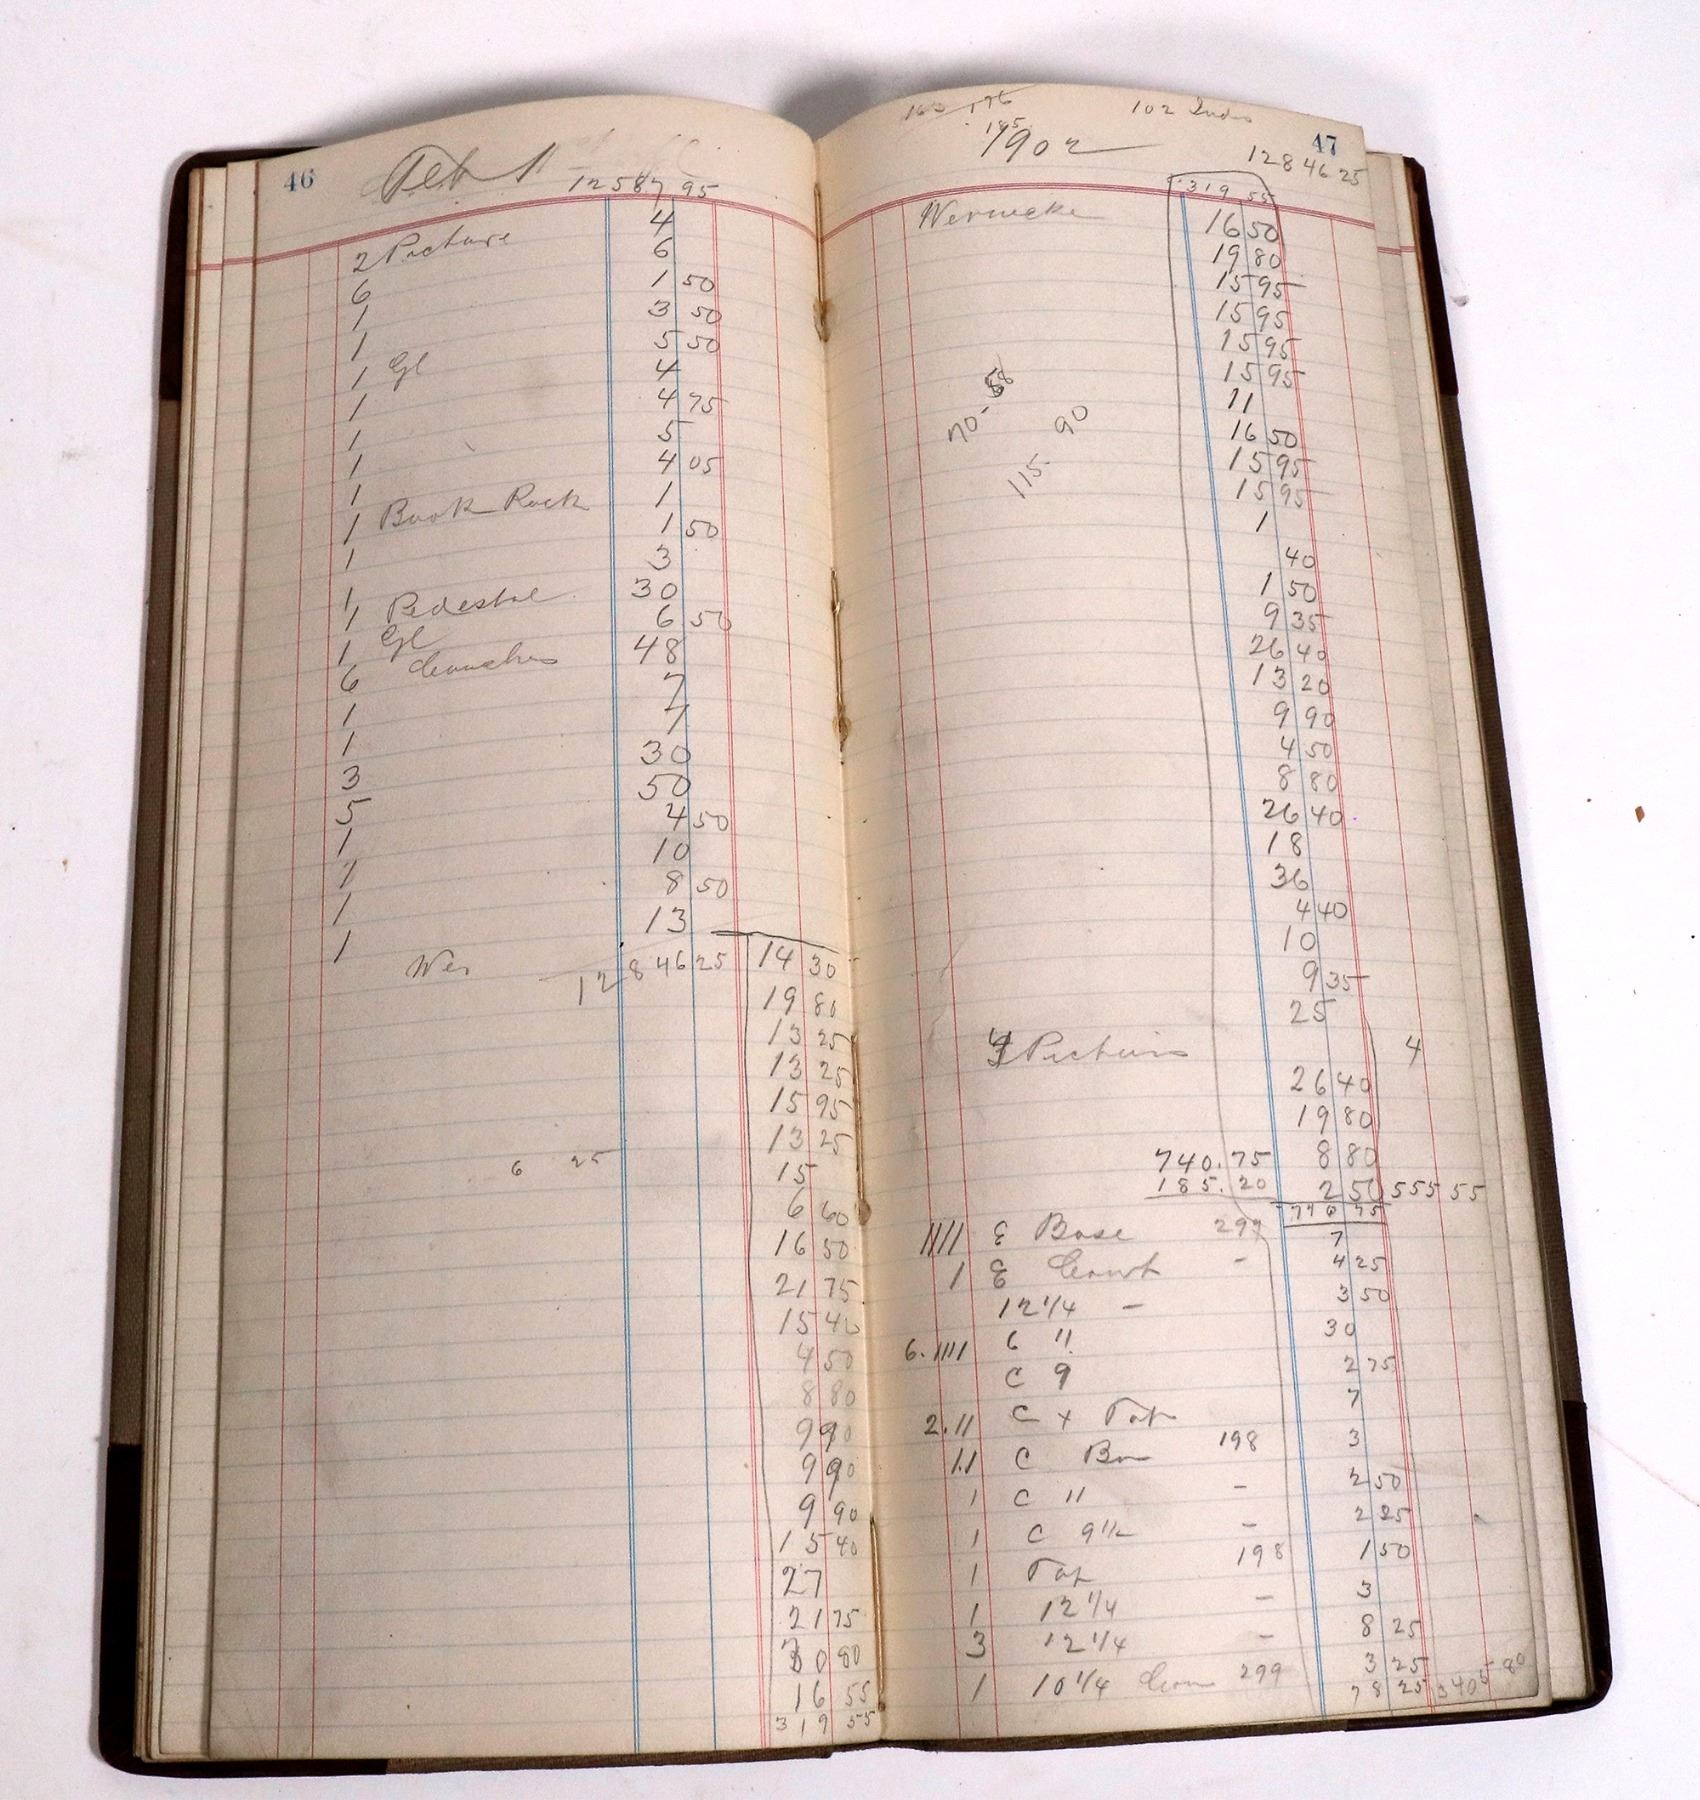 46
Feb 1
12587 95
4
2 Picture 6
6 1 50
1 3 50
1 5 50
1 Gl 4
1 4 75
1 5
1 4 05
1 1
1 Book Rack 1 50
1 3
1 30
1 Pedestal 6 50
1 Gl 48
6 Couches 7
1 7
1 30
3 50
5 4 50
1 10
1 8 50
1 13
1
Wer 12846 25
14 30
19 80
13 25
13 25
15 95
13 25
6 25
15
6 60
16 50
21 75
15 40
4 50
8 80
9 90
9 90
9 90
15 40
27
21 75
30 80
16 55
319 55
196
102
185
1902
47
12846 25
319 55
Wernecke 16 50
19 80
15 95
15 95
15 95
15 95
11
16 50
15 95
15 95
70-58
90
115-
1
40
1 50
9 35
26 40
13 20
9 90
4 50
8 80
26 40
18
36
4 40
10
9 35
25
4 Pictures 4
26 40
19 80
740.75 8 80
185.20 2 50 555 55
746 75
1111 E Base 299 7
1 E Court - 4 25
12 1/4 - 3 50
6.1111 C " 30
C 9 2 75
2.11 C x Top 7
11 C Ba 198 3
1 C " - 2 50
1 C 9 1/2 - 2 25
1 Top 198 1 50
1 12 1/4 - 3
3 12 1/4 - 8 25
1 10 1/4 299 3 25
78 25 3405 80